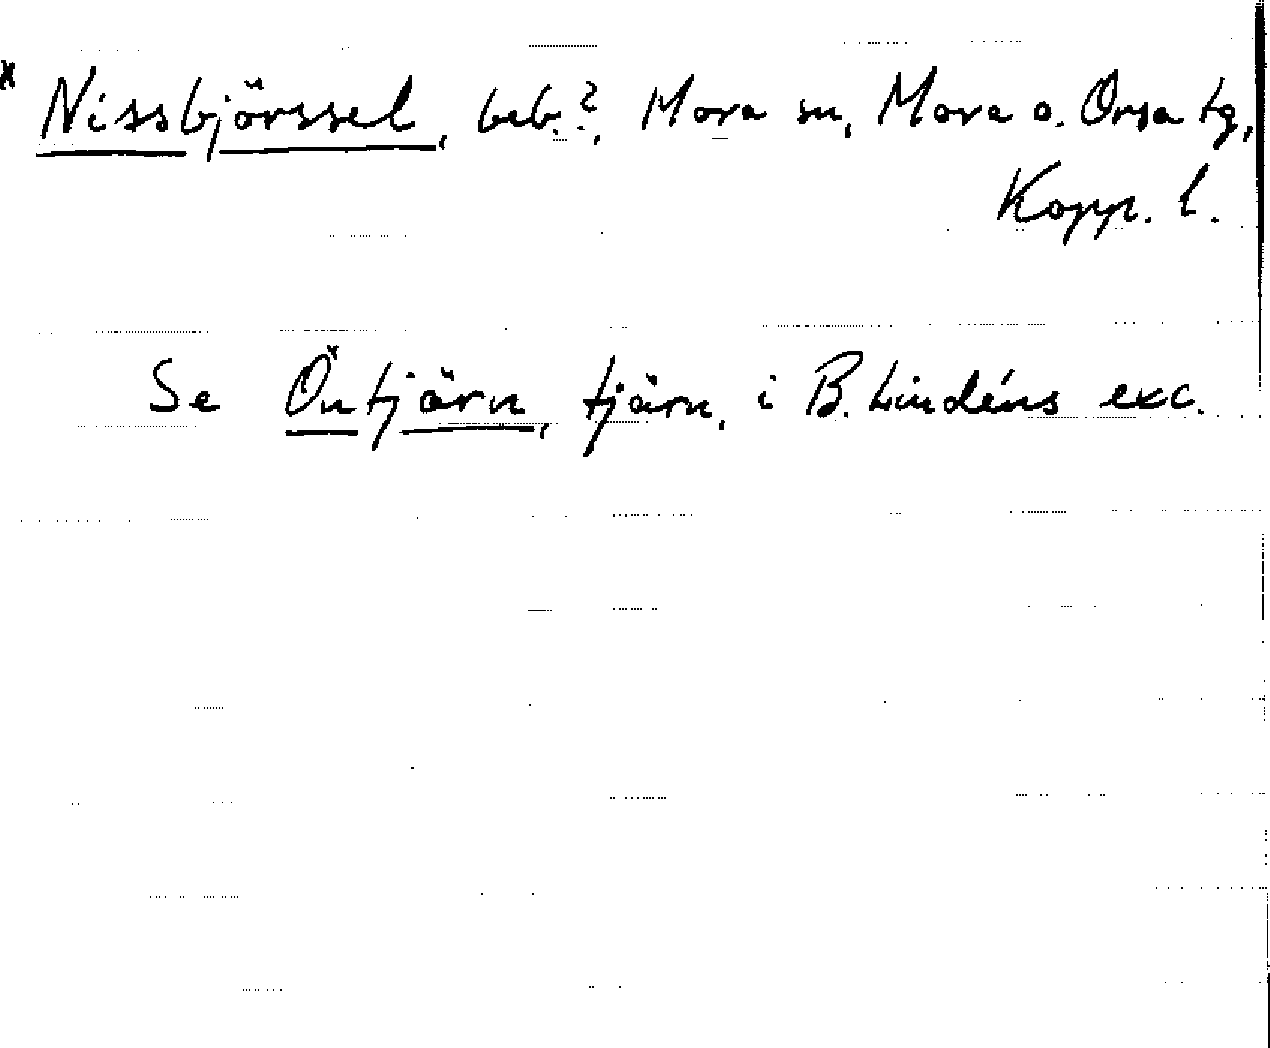 * Nissbjörssel, beb.?, Mora sn, Mora o. Orsa tg,
Kopp. l.
Se Öntjärn, tjärn, i B. Lindéns exc.